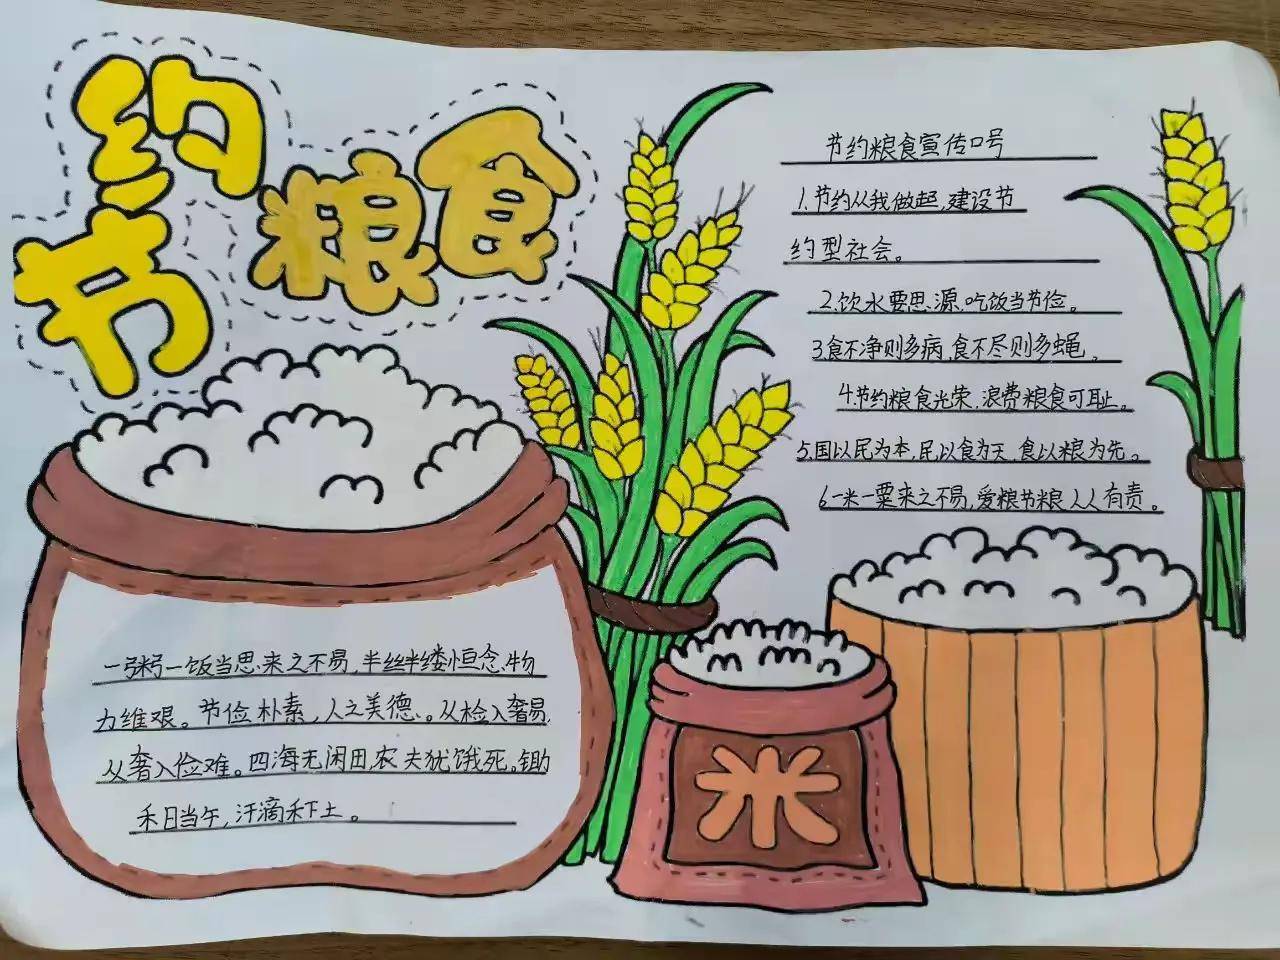 节约粮食
节约粮食宣传口号
1.节约从我做起,建设节
约型社会。
2.饮水要思源,吃饭当节俭。
3食不净则多病,食不尽则多蝇。
4.节约粮食光荣,浪费粮食可耻。
5.国以民为本,民以食为天,食以粮为先。
6一米一粟来之不易,爱粮节粮人人有责。
一粥一饭当思来之不易,半丝半缕恒念物
力维艰。节俭朴素,人之美德。从检入奢易,
从奢入俭难。四海无闲田,农夫犹饿死。锄
禾日当午,汗滴禾下土。
米